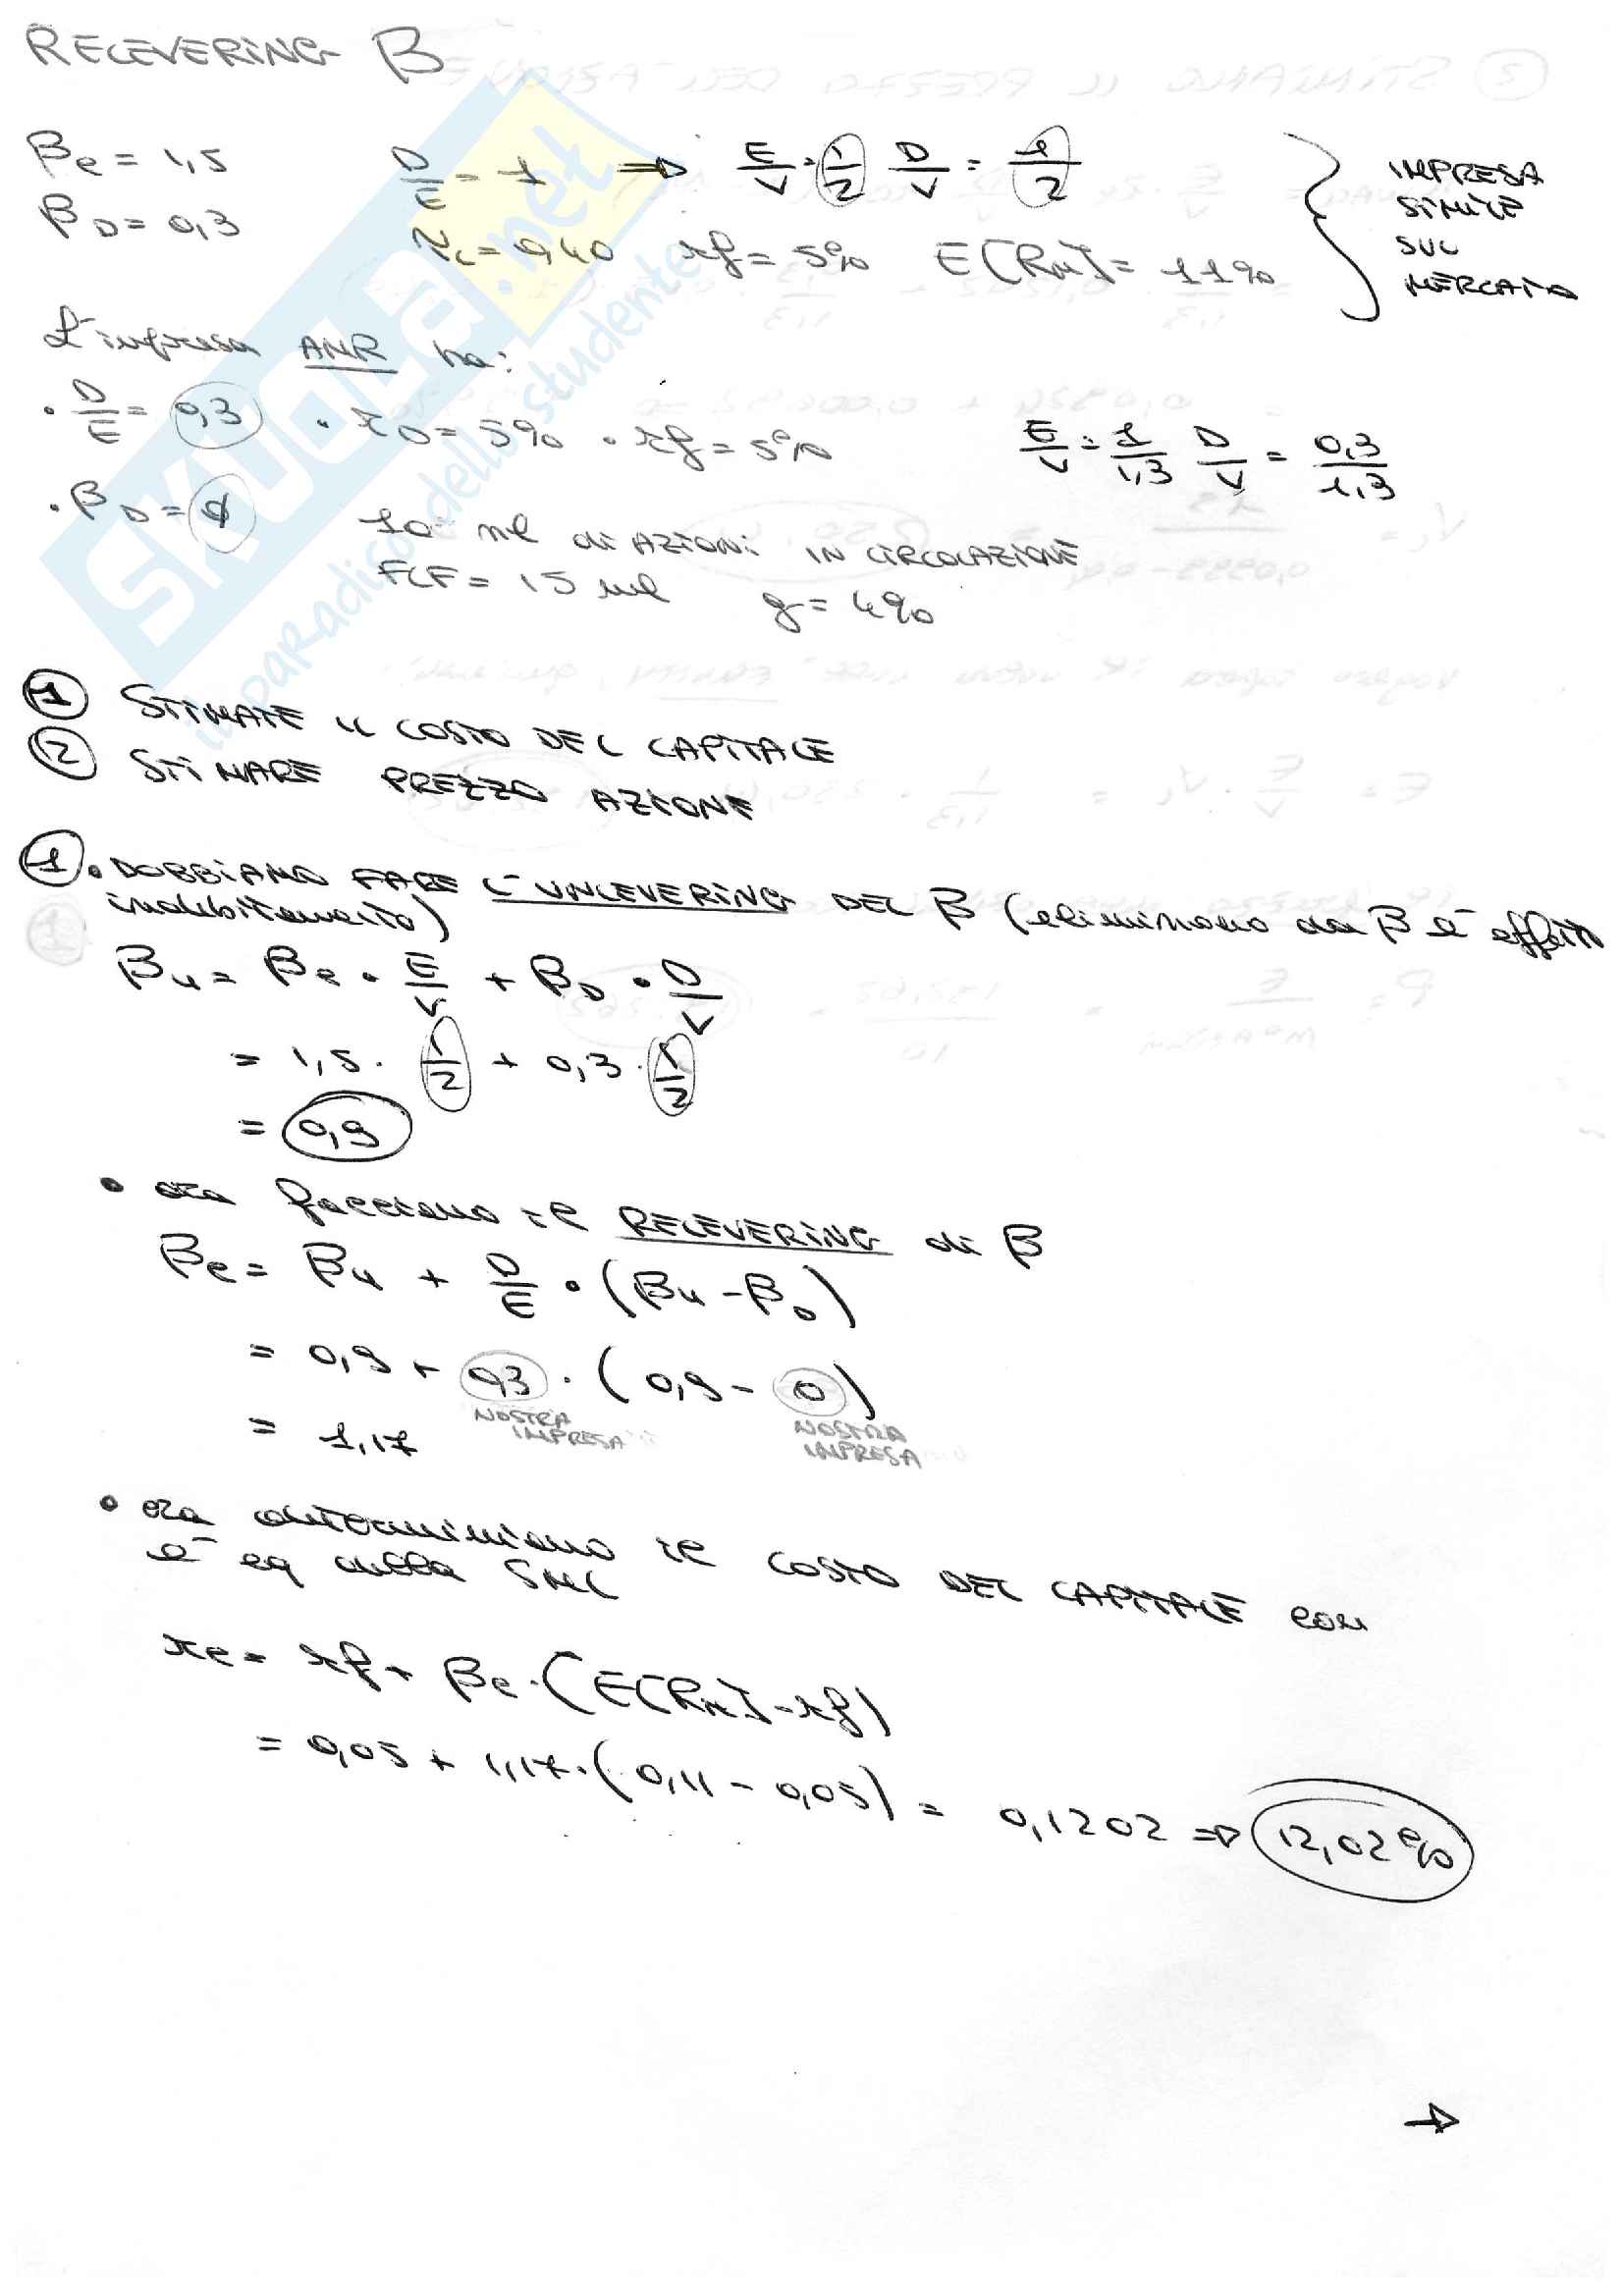 RELEVERING β
βe = 1,5 D/E = 1 ⇒ E/V = 1/2 D/V = 1/2
βD = 0,3 τc = 0,40 rf = 5% E[RM] = 11%
IMPRESA
SIMILE
SUL
MERCATO
L'impresa ANR ha:
• D/E = 0,3 • rD = 5% • rf = 5% E/V = 1/1,3 D/V = 0,3/1,3
• βD = 0
10 ml di AZIONI IN CIRCOLAZIONE
FCF = 15 ml g = 4%
1 STIMATE IL COSTO DEL CAPITALE
2 STIMARE PREZZO AZIONE
1 • DOBBIAMO FARE L'UNLEVERING DEL β (eliminiamo da β l'effetto
indebitamento)
βu = βe • E/V + βD • D/V
= 1,5 • 1/2 + 0,3 • 1/2
= 0,9
• ora facciamo il RELEVERING di β
βe = βu + D/E • (βu - βD)
= 0,9 + 0,3 • (0,9 - 0)
NOSTRA IMPRESA NOSTRA IMPRESA
= 1,17
• ora determiniamo il COSTO DEL CAPITALE con
l'eq della SML
re = rf + βe • (E[RM] - rf)
= 0,05 + 1,17 • (0,11 - 0,05) = 0,1202 ⇒ 12,02%
→
SKUOLA.net
il paradiso dello studente